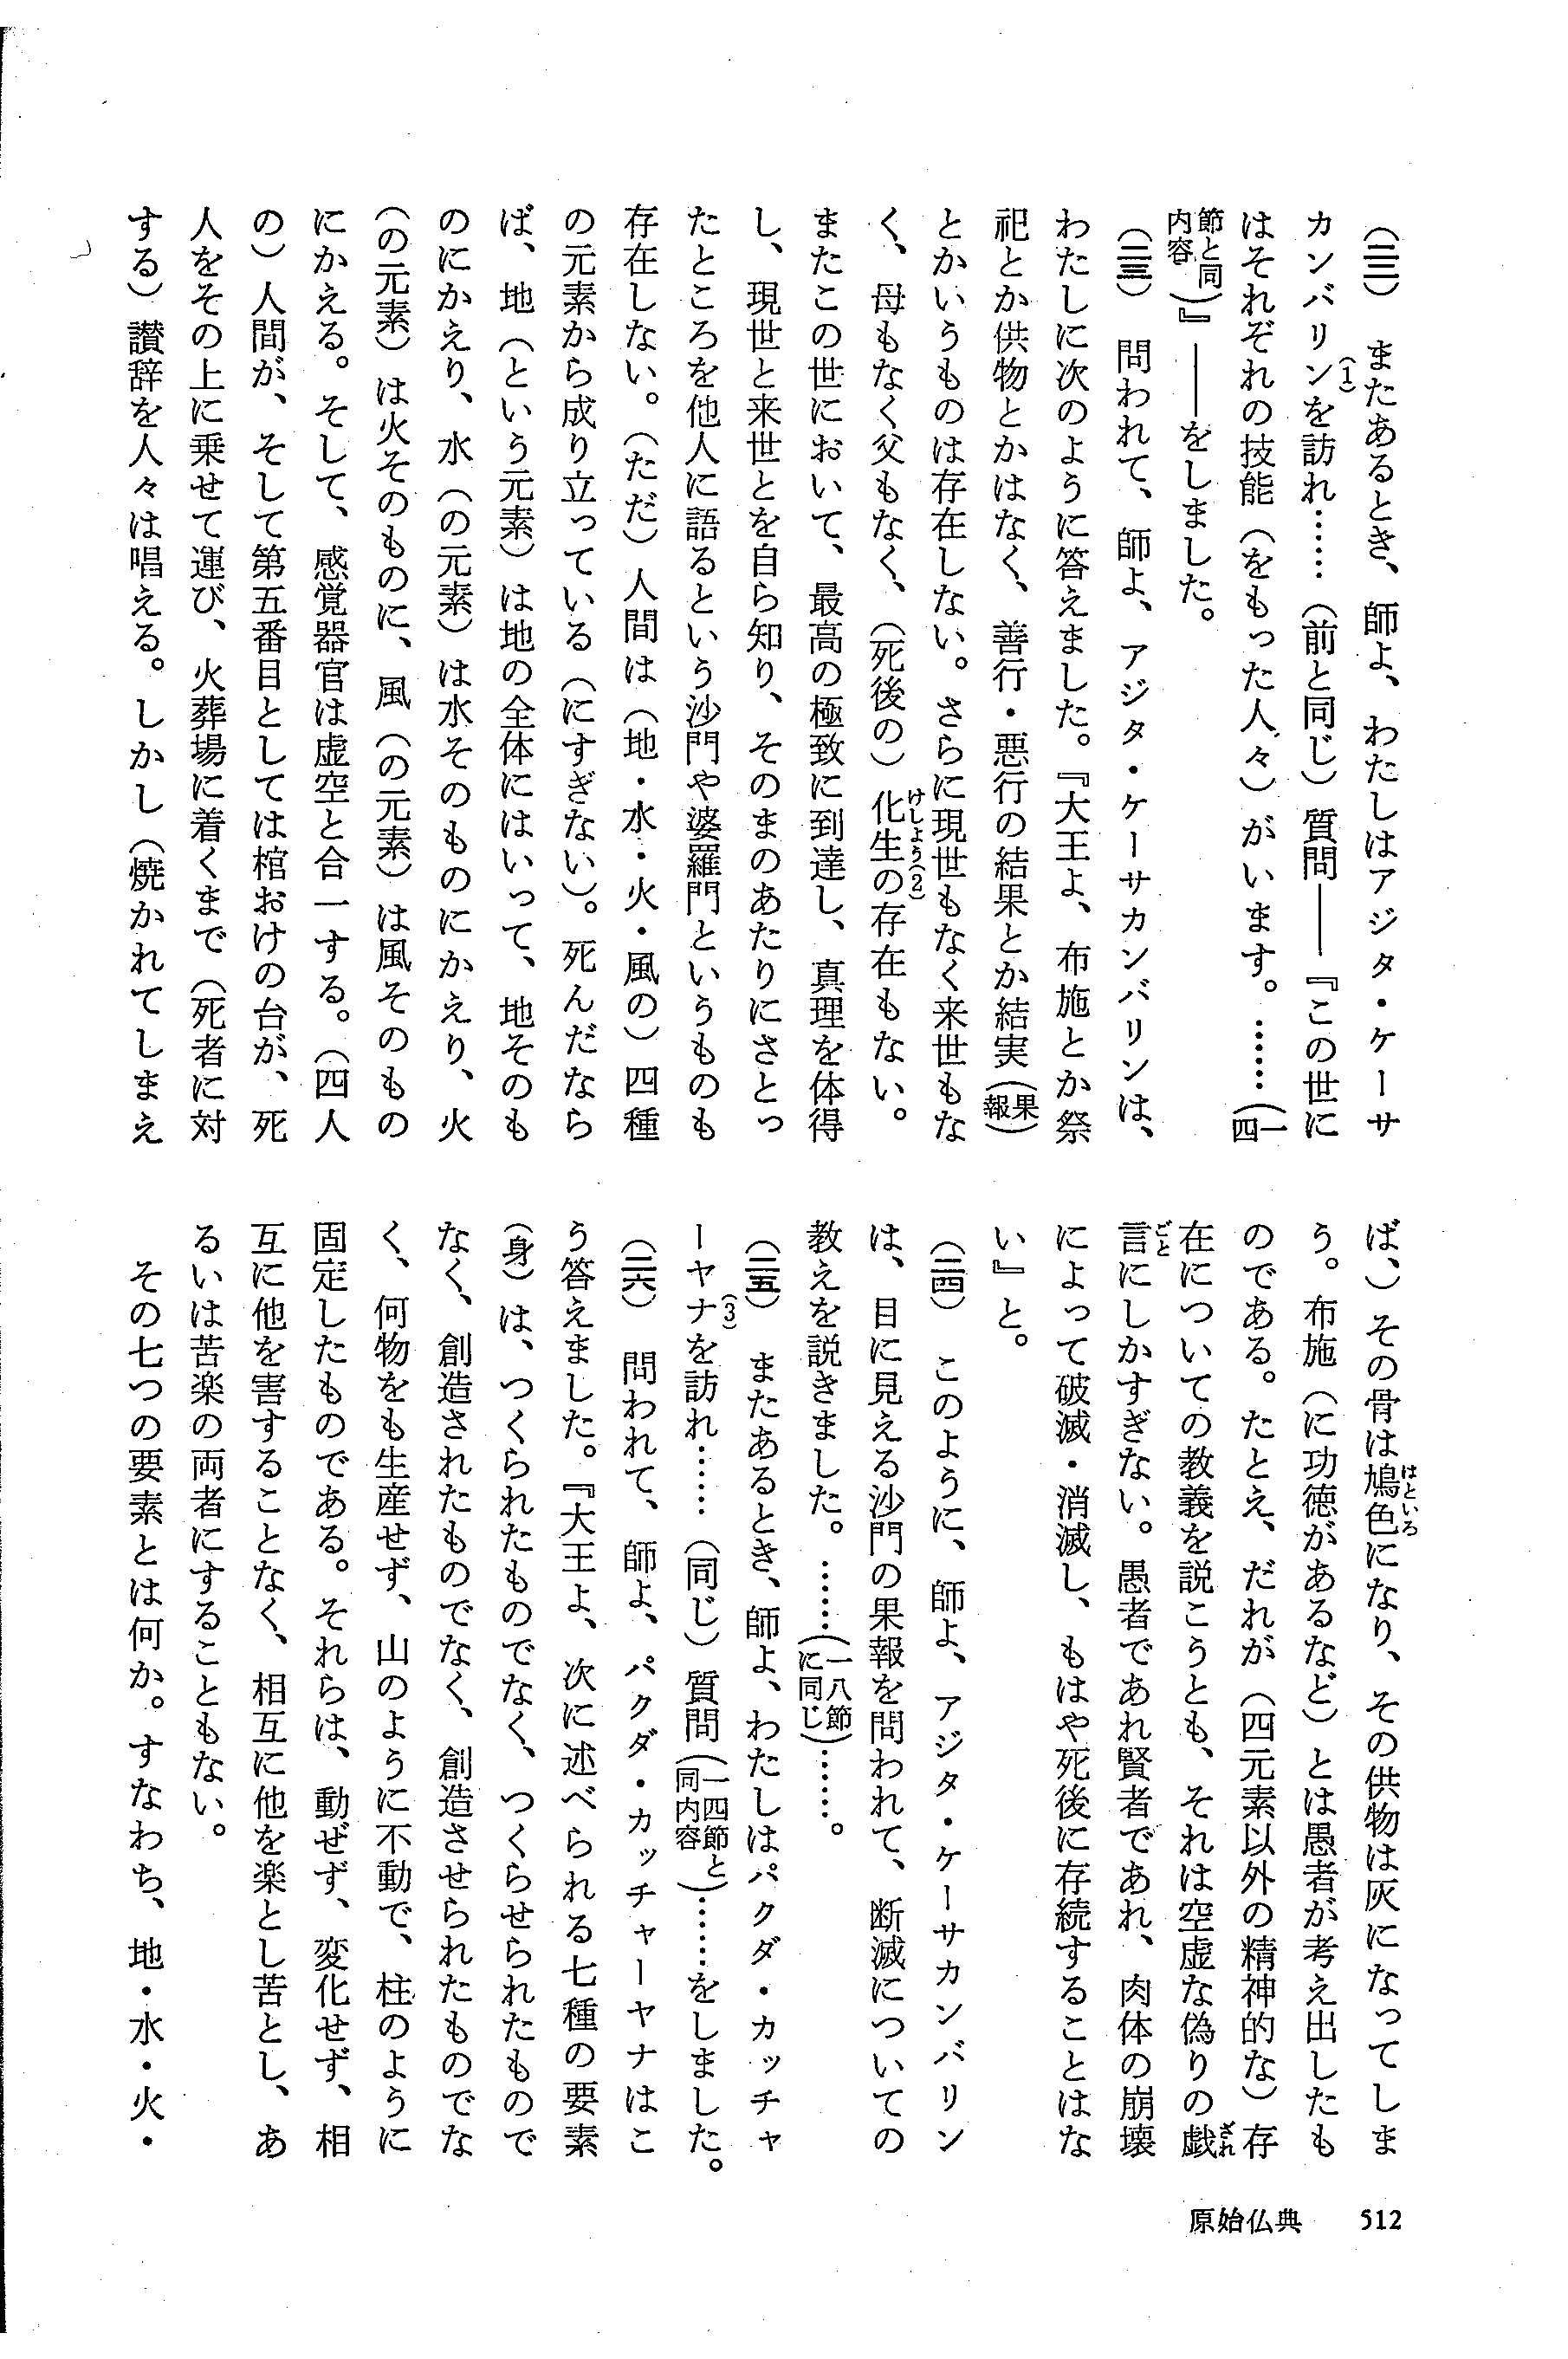 (二二)　またあるとき、師よ、わたしはアジタ・ケーサ
カンバリン(1)を訪れ……（前と同じ）質問――『この世に
はそれぞれの技能（をもった人々）がいます。……（一四
節と同内容）』――をしました。
(二三)　問われて、師よ、アジタ・ケーサカンバリンは、
わたしに次のように答えました。『大王よ、布施とか祭
祀とか供物とかはなく、善行・悪行の結果とか結実（果報）
とかいうものは存在しない。さらに現世もなく来世もな
く、母もなく父もなく、（死後の）化生けしょう(2)の存在もない。
またこの世において、最高の極致に到達し、真理を体得
し、現世と来世とを自ら知り、そのまのあたりにさとっ
たところを他人に語るという沙門や婆羅門というものも
存在しない。（ただ）人間は（地・水・火・風の）四種
の元素から成り立っている（にすぎない）。死んだなら
ば、地（という元素）は地の全体にはいって、地そのも
のにかえり、水（の元素）は水そのものにかえり、火
（の元素）は火そのものに、風（の元素）は風そのもの
にかえる。そして、感覚器官は虚空と合一する。（四人
の）人間が、そして第五番目としては棺おけの台が、死
人をその上に乗せて運び、火葬場に着くまで（死者に対
する）讃辞を人々は唱える。しかし（焼かれてしまえ
ば、）その骨は鳩色はといろになり、その供物は灰になってしま
う。布施（に功徳があるなど）とは愚者が考え出したも
のである。たとえ、だれが（四元素以外の精神的な）存
在についての教義を説こうとも、それは空虚な偽りの戯ざれ
言ごとにしかすぎない。愚者であれ賢者であれ、肉体の崩壊
によって破滅・消滅し、もはや死後に存続することはな
い』と。
(二四)　このように、師よ、アジタ・ケーサカンバリン
は、目に見える沙門の果報を問われて、断滅についての
教えを説きました。……（一八節に同じ）……。
(二五)　またあるとき、師よ、わたしはパクダ・カッチャ
ーヤナ(3)を訪れ……（同じ）質問（一四節と同内容）……をしました。
(二六)　問われて、師よ、パクダ・カッチャーヤナはこ
う答えました。『大王よ、次に述べられる七種の要素
（身）は、つくられたものでなく、つくらせられたもので
なく、創造されたものでなく、創造させられたものでな
く、何物をも生産せず、山のように不動で、柱のように
固定したものである。それらは、動ぜず、変化せず、相
互に他を害することなく、相互に他を楽とし苦とし、あ
るいは苦楽の両者にすることもない。
その七つの要素とは何か。すなわち、地・水・火・
原始仏典　512